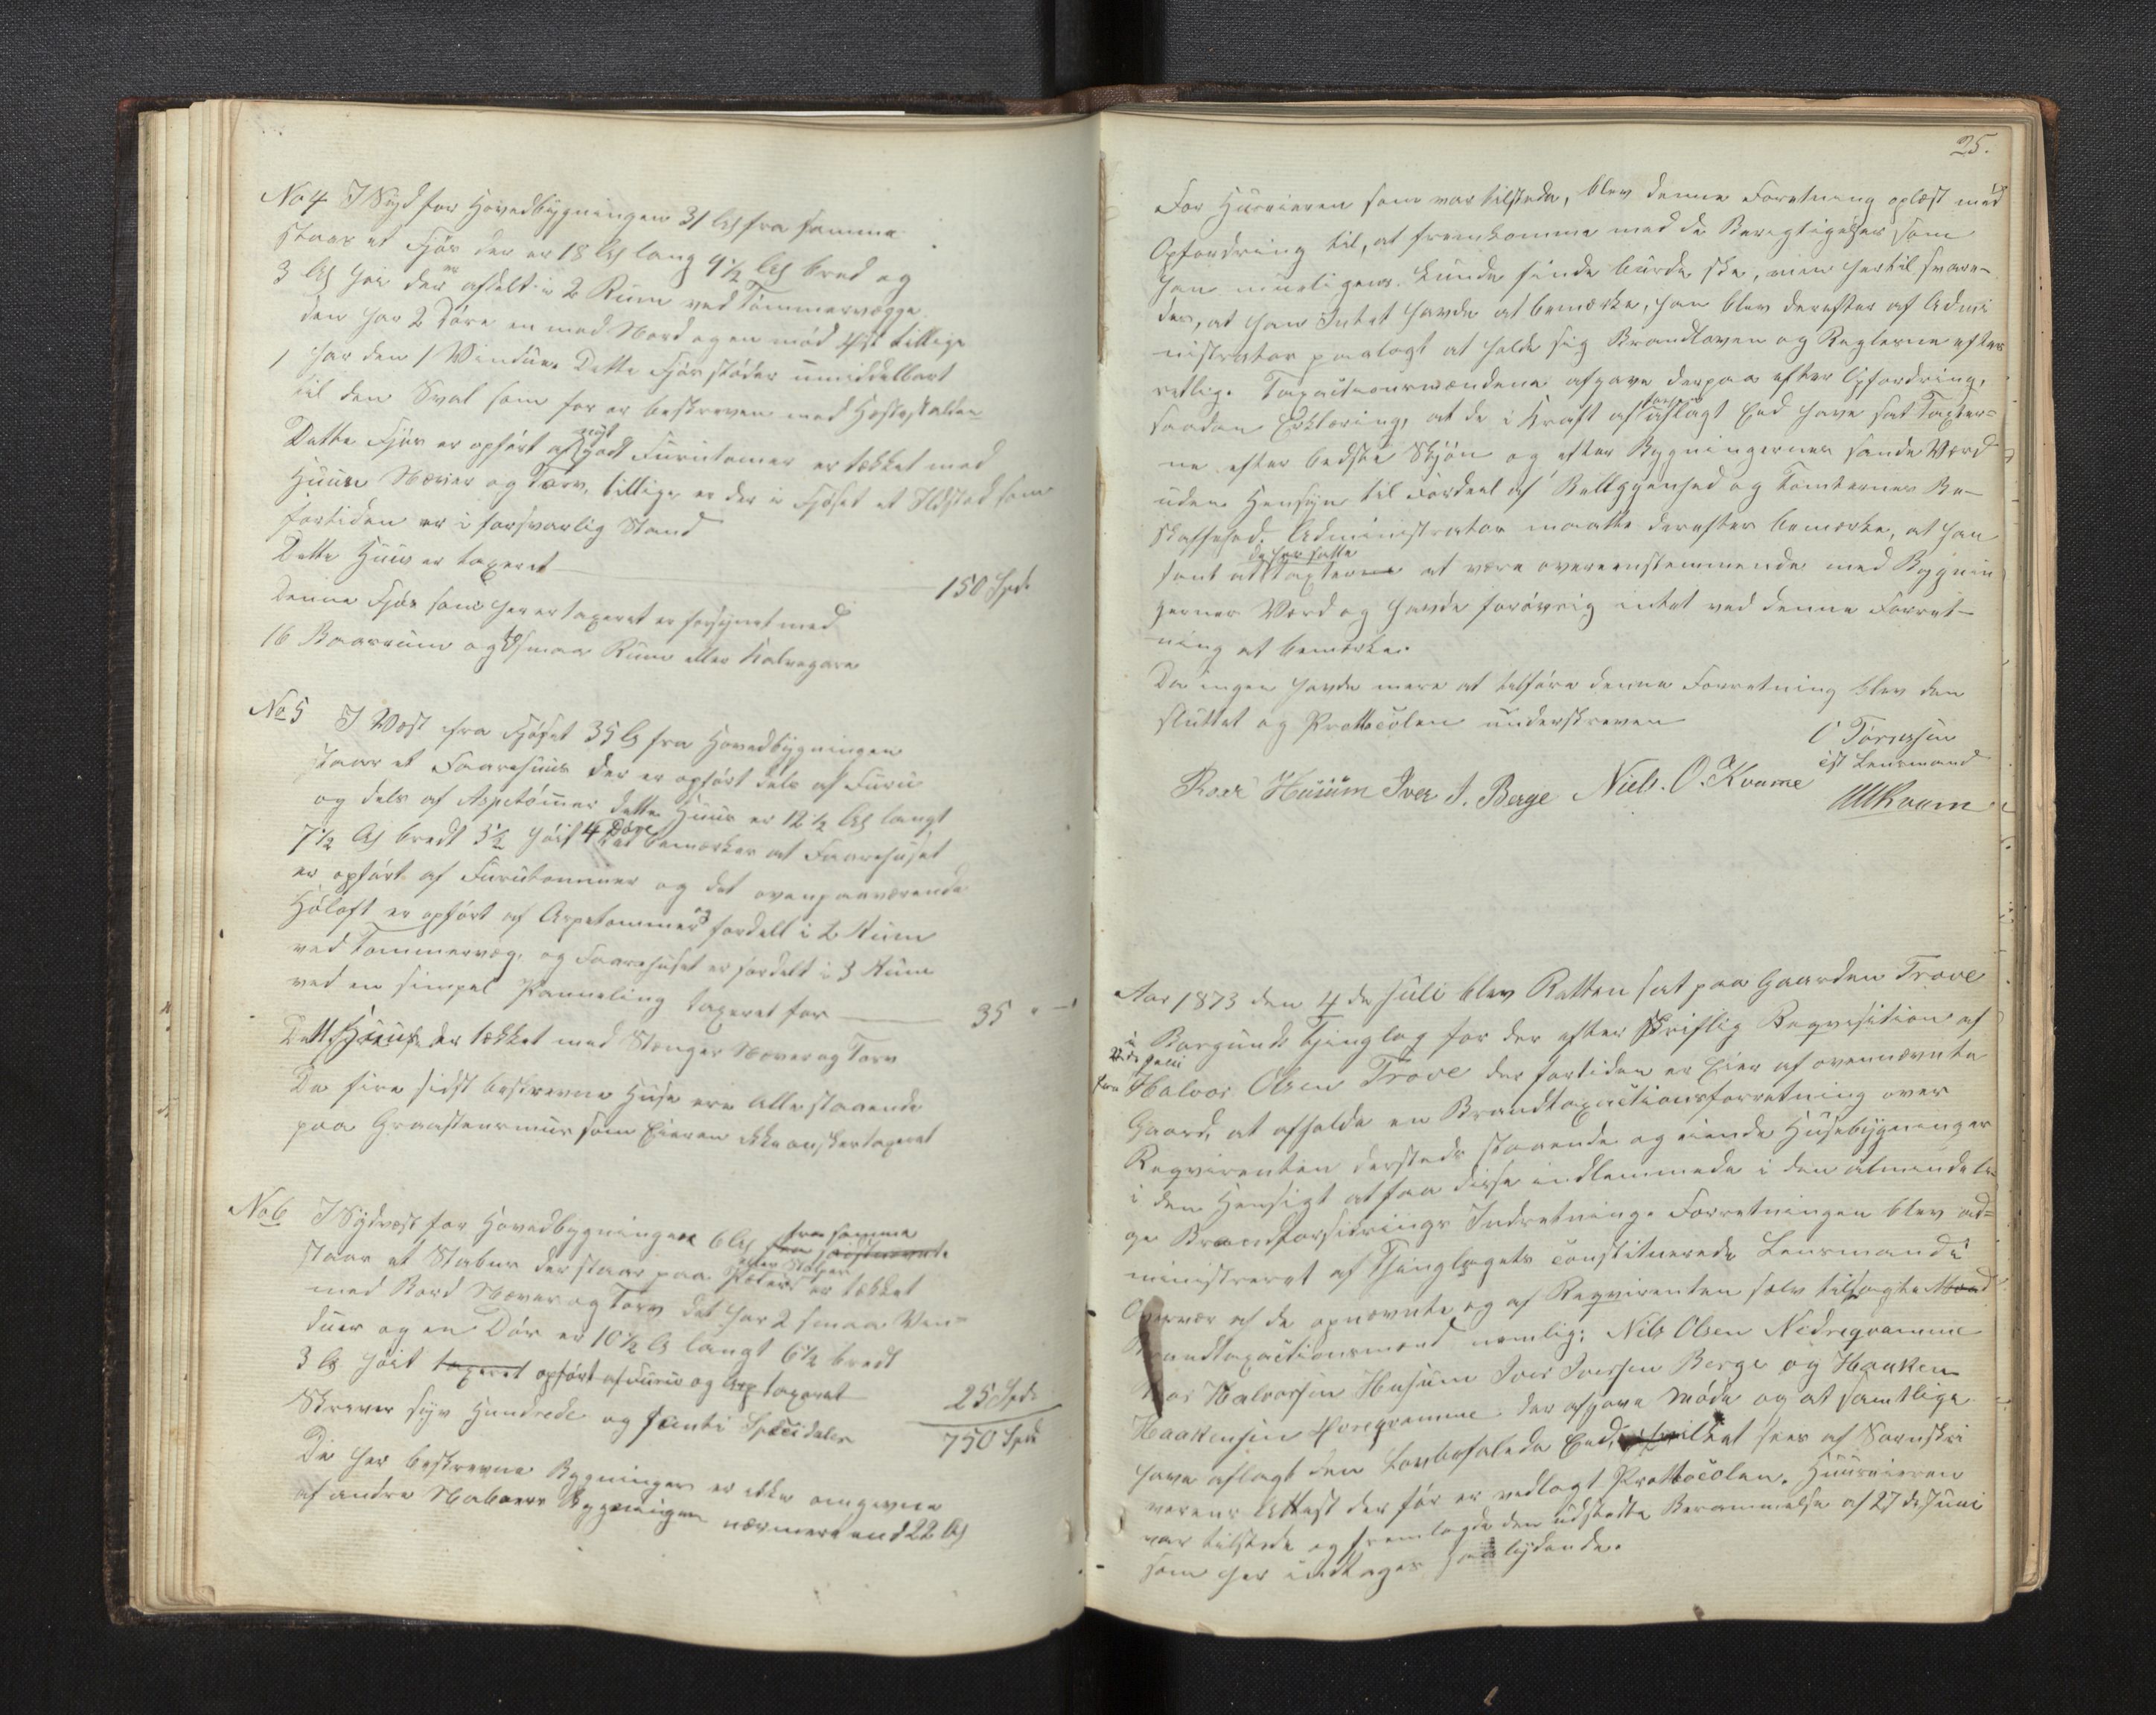 No 4 I Syd for Hovedbygningen 31 Al fra samme
staar et Fjøs der er 18 Al lang 9 1/2 Al bred og
3 Al høi der er afdelt i 2 Rum ved Tømmervægge
den har 2 Døre en mod Nord og en mod Øst tillige
har den 1 Vindue. Dette Fjøs støder umiddelbart
til den Sval som før er beskreven med Hestestalden
Dette Fjøs er opført af nyt godt Furutømer er tækket med
Huun Næver og Tørv, tillige er der i Fjøset et Ildsted som
fortiden er i forsvarlig Stand
Dette Huus er taxeret 150 Spd.
Denne Fjøs som her er taxeret er forsynet med
16 Baasrum og to smaa Rum eller Kalvegare
No 5 I Vest fra Fjøset 35 Al fra Hovedbygningen
staar et Faarehuus der er opført dels af Furu
og dels af Aspetømer dette Huus er 12 1/2 Al langt
7 1/2 Al bredt 5 1/2 høit 4 Døre Det bemærkes at Faarehuset
er opført af Furutømmer og det ovenpaaværende
Høloft er opført af Aspetømmer og fordelt i 2 Rum
ved Tømmervæg, og Faarehuset er fordelt i 3 Rum
ved en simpel Panneling taxeret for 35 " –
Dett Huus er tækket med Stænger Næver og Torv
De fire sidst beskrevne Huse ere Alle staaende
paa Graastensmur som Eieren ikke ønsker taxeret
No 6 I Sydvest for Hovedbygningen 6 Al fra samme
staar et Stabur der staar paa eller Stolper er tækket
med Bord Næver og Torv det har 2 smaa Vin-
duer og en Dør er 10 1/2 Al langt 6 1/2 bredt
3 Al høit taxeret opført af Furu og Asp taxeret 25 Spd.
Skriver syv Hundrede og femti Speciedaler 750 Spd
De her beskrevne Bygninger er ikke omgivne
af andre Naboers Bygninger nærmere end 22 Al
25.
For Huuseieren som var tilstede, blev denne Forretning oplæst med
Opfordring til, at fremkomme med de Berigtigelser som
han mueligens kunde finde burde ske, men hertil svare-
des, at han Intet havde at bemærke, han blev derefter af Admi
nistrator paalagt at holde sig Brandloven og Reglerne efter
rettlig. Taxactionsmændene afgave derpaa efter Opfordring,
saadan Erklæring, at de i Kraft af aflagt Eed have sat Taxter-
ne efter bedste Skjøn og efter Bygningernes sande Værd
uden Hensyn til Fordeel af Beliggenhed og Tomternes Be-
skaffenhed. Administrator maatte derefter bemærke, at han
fant at de her satte Taxter at være overeensstemmende med Bygnin
gernes Værd og havde forøvrig intet ved denne Forret-
ning at bemærke.
Da ingen havde mere at tilføre denne Forretning blev den
sluttet og Prottocolen underskreven
O Tørresen
cst Lensmand
Roar Husum Iver I. Berge Niels. O. Kvame
Aar 1873 den 4de Juli blev Retten sat paa Gaarden Trove
i Borgunds Tjinglag for der efter skriftlig Reqvisition af
Halvor Olsen Trove der fortiden er Eier af ovennævnte
Gaard, at afholde en Brandtaxactionsforretning over
Reqvirenten dersteds staaende og eiende Husebygninger
i den Hensigt at faa disse indlemmede i den almindeli
ge Brandforsikrings Indretning. Forretningen blev ad-
ministreret af Thinglagets constituerede Lensmand i
Overvær af de opnævnte og af Reqvirenten selv tilsagte Mænd
Brandtaxactionsmænd nemlig: Nils Olsen Nedreqvamme
Roar Halvorsen Husum Iver Iversen Berge og Haaken
Haakensen Øvreqvamme der afgave Møde og at samtlige
have aflagt den lovbefalede Eed, hvilket sees af Sorenskri
verens Attest der før er vedlagt Prottocolen. Huuseieren
var tilstede og fremlagde den udstedte Berammelse af 27de Juni
som her indtages saalydende.